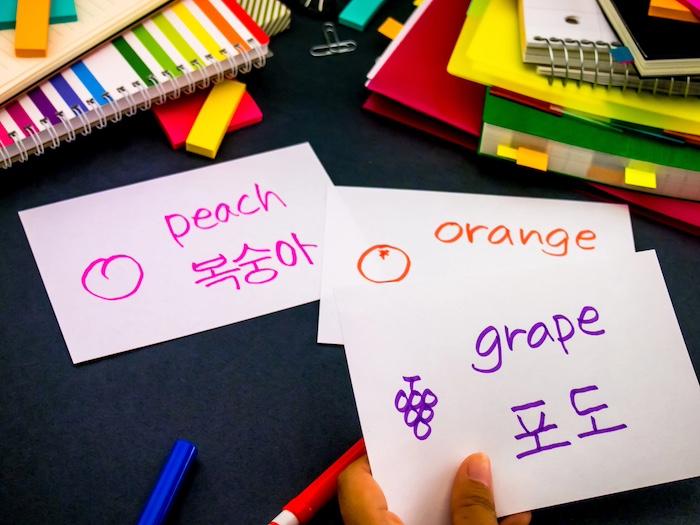 peach
복숭아
orange
grape
포도